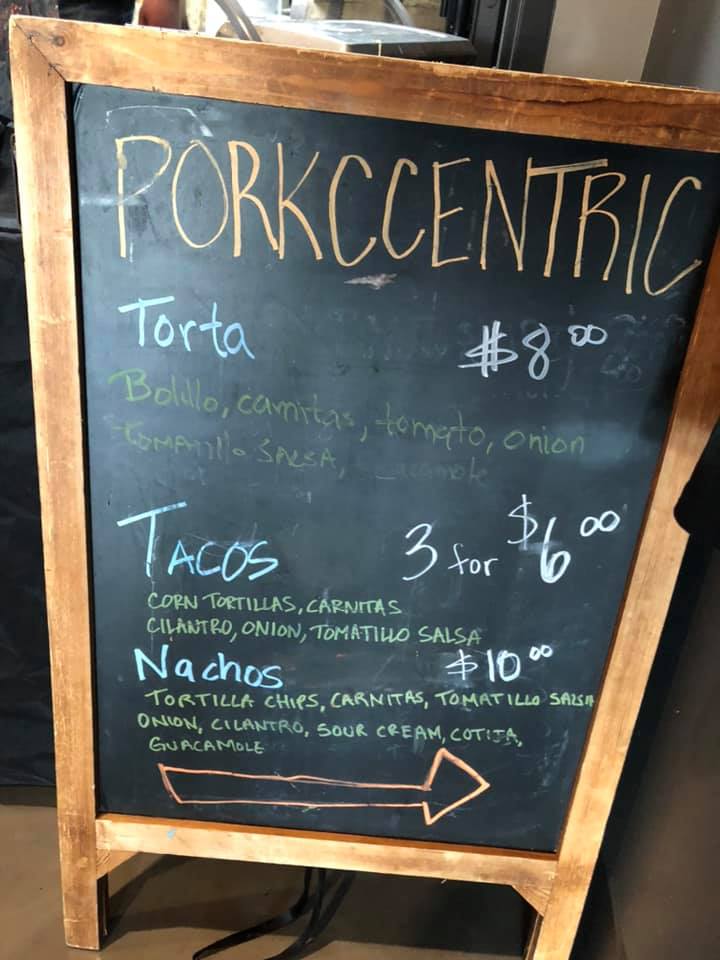 PORKCCENTRIC
Torta $8.00
Bolillo, carnitas, tomato, onion
TOMATILLO SALSA,
TACOS 3 for $6.00
CORN TORTILLAS, CARNITAS
CILANTRO, ONION, TOMATILLO SALSA
Nachos $10.00
TORTILLA CHIPS, CARNITAS, TOMATILLO SALSA
ONION, CILANTRO, SOUR CREAM, COTIJA,
GUACAMOLE